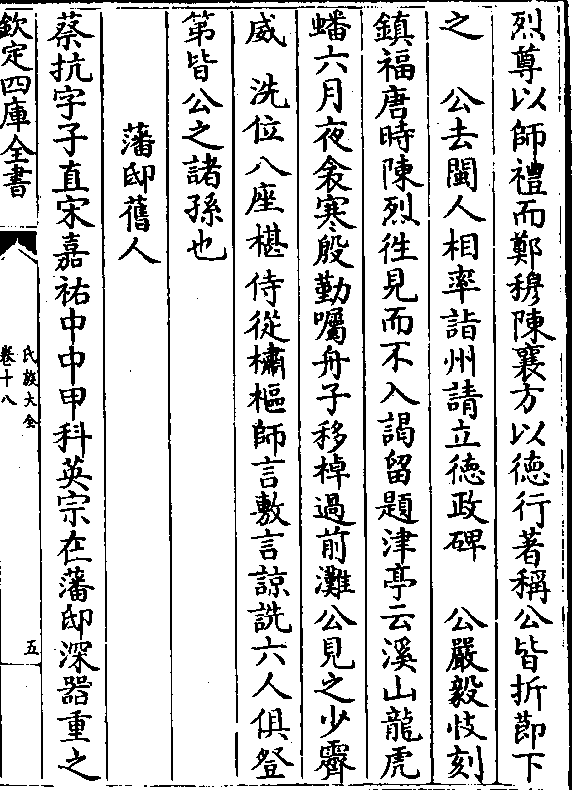 烈尊以師禮而鄭穆陳襄方以徳行著稱公皆折節下
之　公去閩人相率詣州請立徳政碑　公嚴毅忮刻
鎮福唐時陳烈徃見而不入謁留題津亭云溪山龍虎
蟠六月夜衾寒殷勤囑舟子移棹過前灘公見之少霽
威　洗位八座椹侍從橚樞師言敷言諒詵六人俱登
第皆公之諸孫也
藩邸舊人
蔡抗字子直宋嘉祐中中甲科英宗在藩邸深器重之
欽定四庫全書
氏族大全
卷十八
五